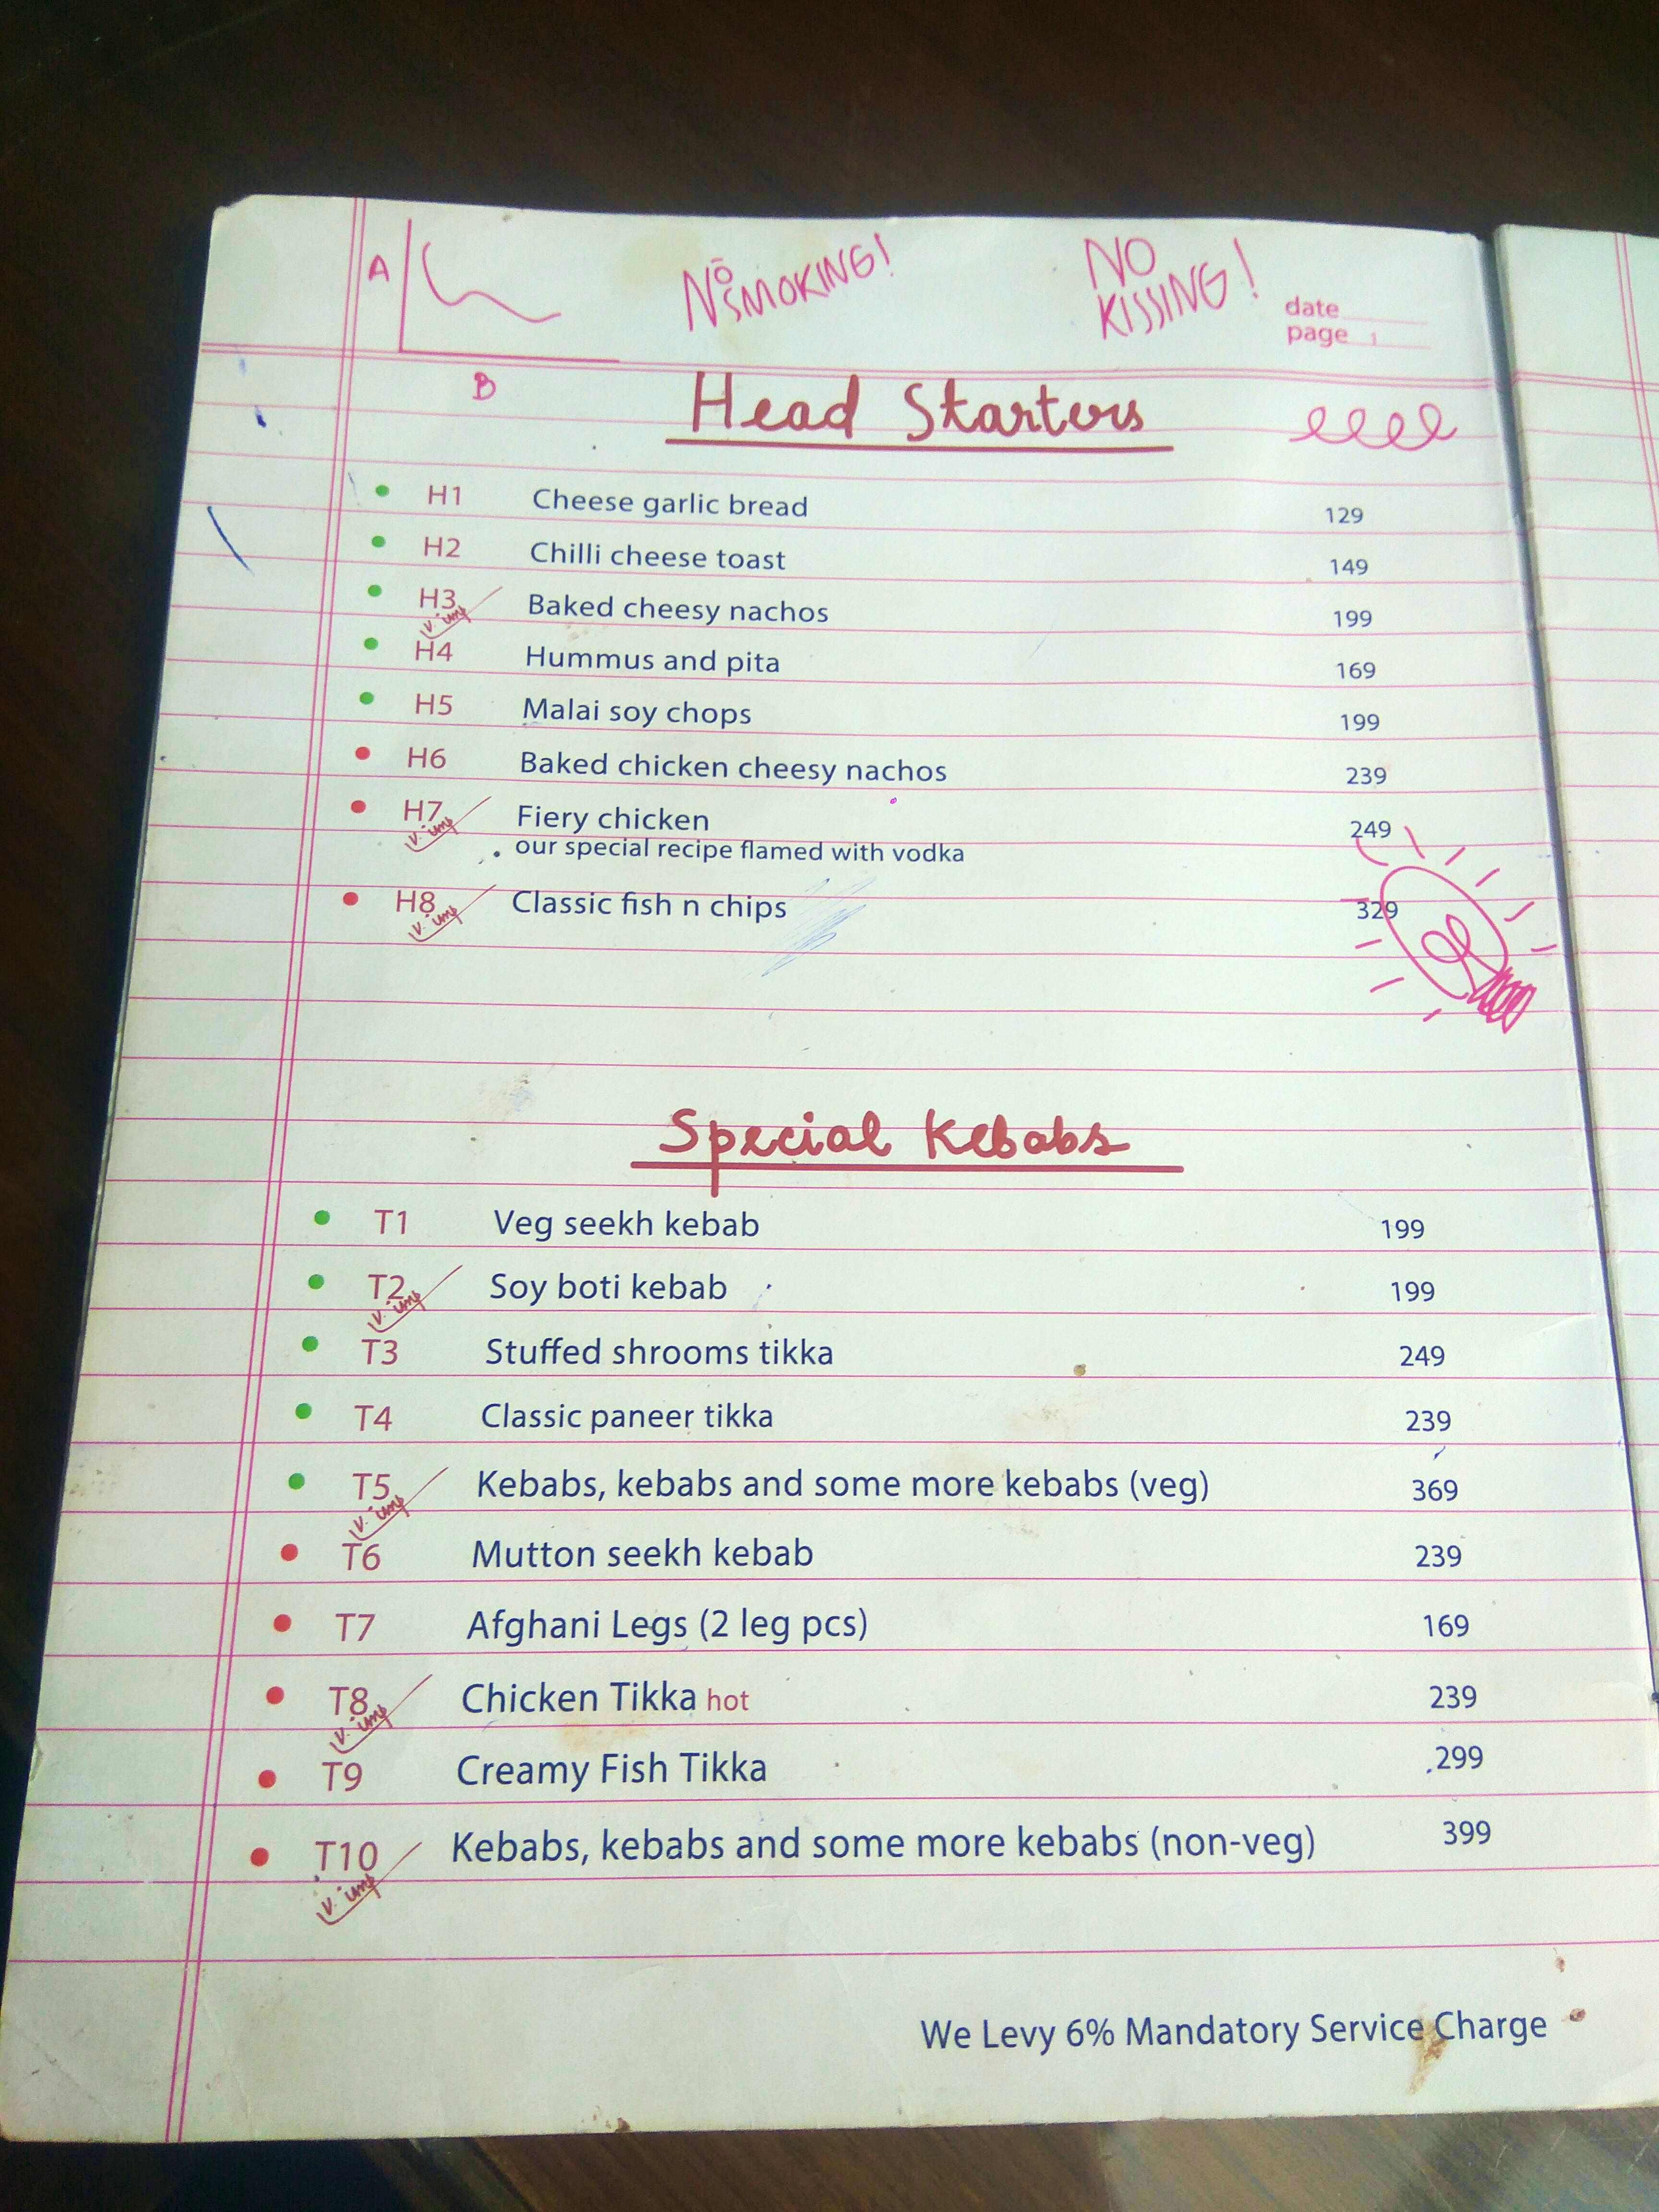 A
B
NO SMOKING!
NO KISSING!
date
page 1
Head Starters
H1 Cheese garlic bread 129
H2 Chilli cheese toast 149
H3 Baked cheesy nachos 199
v. imp
H4 Hummus and pita 169
H5 Malai soy chops 199
H6 Baked chicken cheesy nachos 239
H7 Fiery chicken 249
v. imp our special recipe flamed with vodka
H8 Classic fish n chips 329
v. imp
Special Kebabs
T1 Veg seekh kebab 199
T2 Soy boti kebab 199
v. imp
T3 Stuffed shrooms tikka 249
T4 Classic paneer tikka 239
T5 Kebabs, kebabs and some more kebabs (veg) 369
v. imp
T6 Mutton seekh kebab 239
T7 Afghani Legs (2 leg pcs) 169
T8 Chicken Tikka hot 239
v. imp
T9 Creamy Fish Tikka 299
T10 Kebabs, kebabs and some more kebabs (non-veg) 399
v. imp
We Levy 6% Mandatory Service Charge